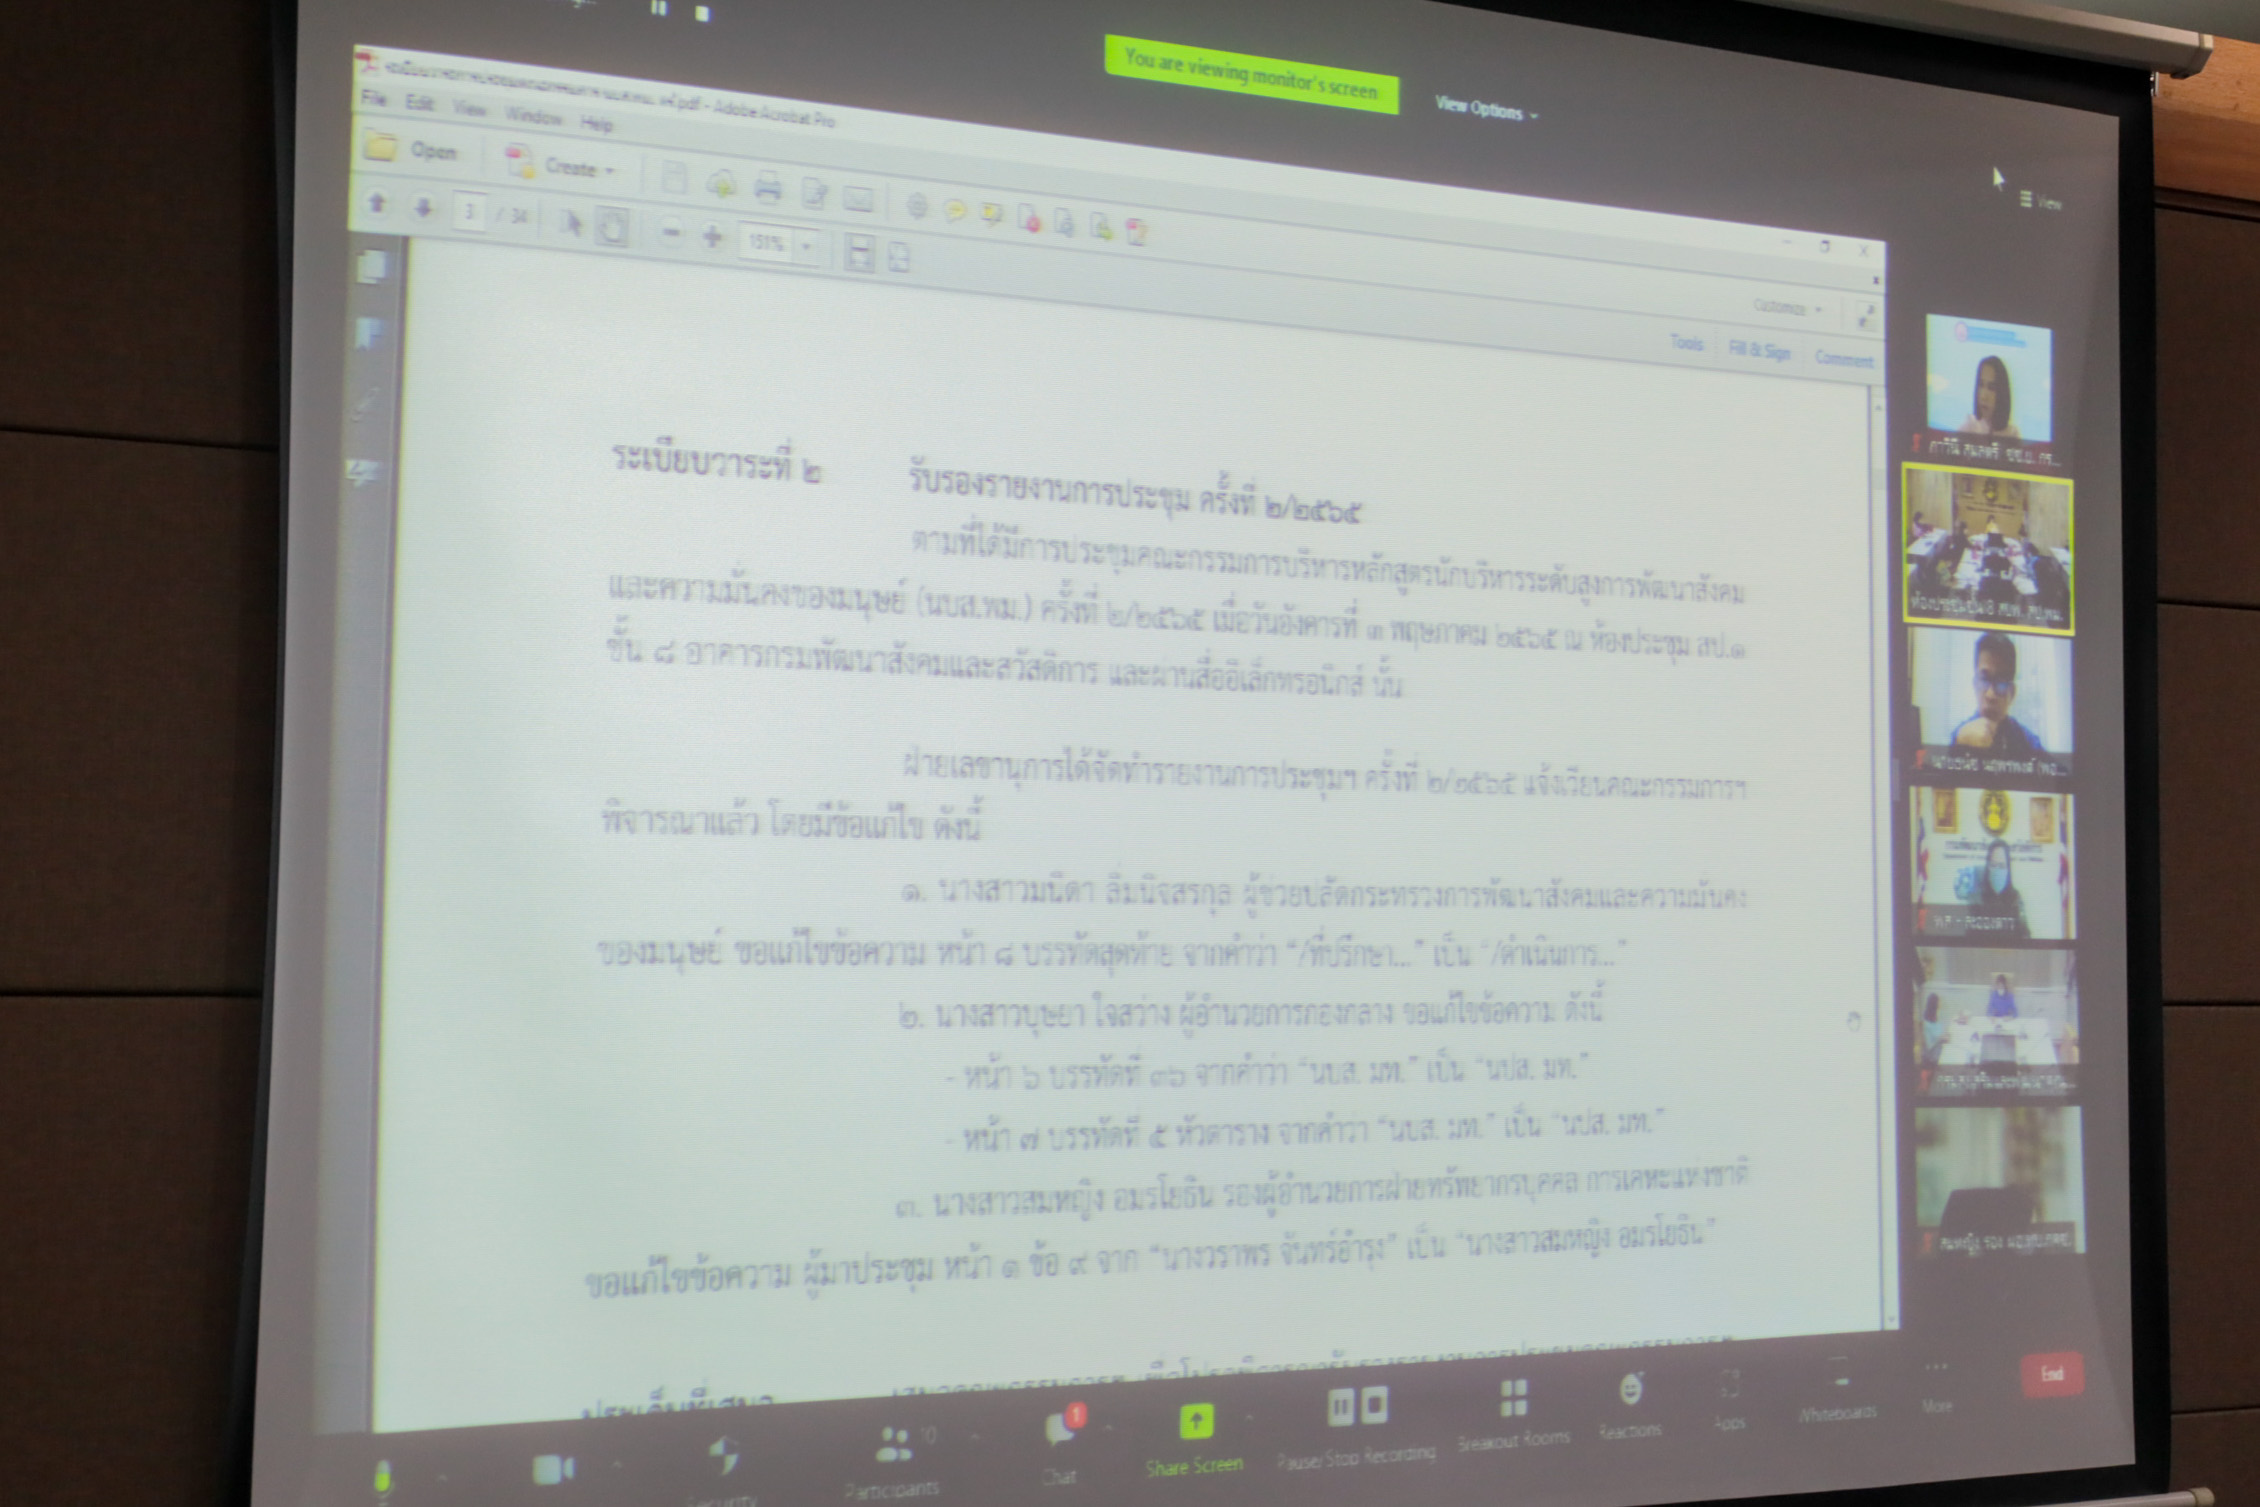 You are viewing monitor's screen
View Options
View
.pdf - Adobe Acrobat Pro
File Edit View Window Help
Open Create
3 / 34 151%
Customize
Tools Fill & Sign Comment
ระเบียบวาระที่ ๒ รับรองรายงานการประชุม ครั้งที่ ๒/๒๕๖๕
ตามที่ได้มีการประชุมคณะกรรมการบริหารหลักสูตรนักบริหารระดับสูงการพัฒนาสังคม
และความมั่นคงของมนุษย์ (นบส.พม.) ครั้งที่ ๒/๒๕๖๕ เมื่อวันอังคารที่ ๓ พฤษภาคม ๒๕๖๕ ณ ห้องประชุม สป.๑
ชั้น ๘ อาคารกรมพัฒนาสังคมและสวัสดิการ และผ่านสื่ออิเล็กทรอนิกส์ นั้น
ฝ่ายเลขานุการได้จัดทำรายงานการประชุมฯ ครั้งที่ ๒/๒๕๖๕ แจ้งเวียนคณะกรรมการฯ
พิจารณาแล้ว โดยมีข้อแก้ไข ดังนี้
๑. นางสาวมนิดา ลิ่มนิจสรกุล ผู้ช่วยปลัดกระทรวงการพัฒนาสังคมและความมั่นคง
ของมนุษย์ ขอแก้ไขข้อความ หน้า ๘ บรรทัดสุดท้าย จากคำว่า "/ที่ปรึกษา..." เป็น "/ดำเนินการ..."
๒. นางสาวบุษยา ใจสว่าง ผู้อำนวยการกองกลาง ขอแก้ไขข้อความ ดังนี้
- หน้า ๖ บรรทัดที่ ๓๖ จากคำว่า "นบส. มท." เป็น "นปส. มท."
- หน้า ๗ บรรทัดที่ ๕ หัวตาราง จากคำว่า "นบส. มท." เป็น "นปส. มท."
๓. นางสาวสมหญิง อมรโยธิน รองผู้อำนวยการฝ่ายทรัพยากรบุคคล การเคหะแห่งชาติ
ขอแก้ไขข้อความ ผู้มาประชุม หน้า ๑ ข้อ ๙ จาก "นางวราพร จันทร์อำรุง" เป็น "นางสาวสมหญิง อมรโยธิน"
ประเด็นที่เสนอ
Security Participants 10 Chat 1 Share Screen Pause/Stop Recording Breakout Rooms Reactions Apps Whiteboards More End